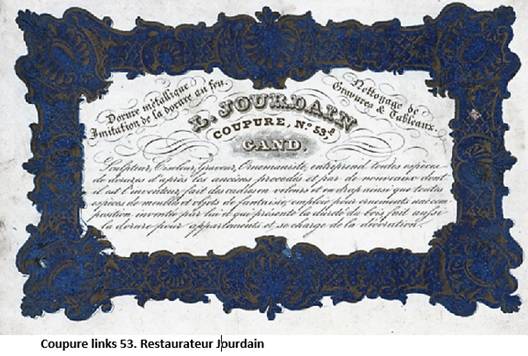 Dorure métallique
Imitation de la dorure au feu.
Nettoyage de
Gravures & Tableaux.
L. JOURDAIN
COUPURE, N.º 53.
GAND.
Sculpteur, Ciseleur, Graveur, Ornemaniste, entreprend toutes espèces
de dorures d'après les anciens procédés et par de nouveaux dont
il est l'inventeur, fait des cadres en velours et en drap ainsi que toutes
espèces de meubles et objets de fantaisie, emploie pour ornements une com-
position inventée par lui et qui présente la dureté du bois, fait aussi
la dorure pour appartements et se charge de la décoration.
Coupure links 53. Restaurateur Jourdain